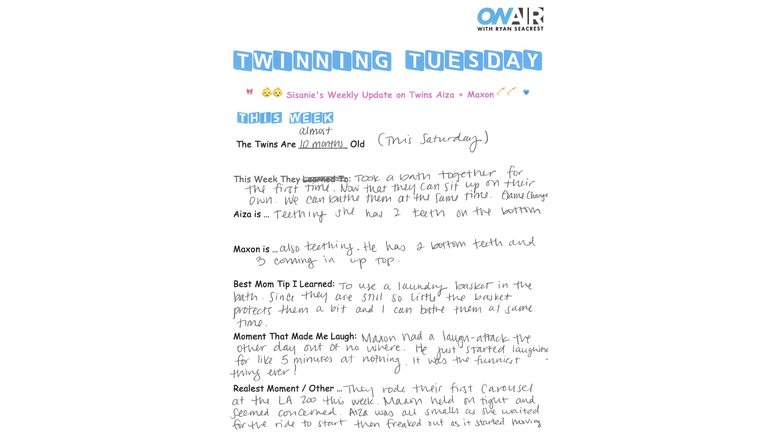 ON AIR
WITH RYAN SEACREST
TWINNING TUESDAY
Sisanie's Weekly Update on Twins Aiza + Maxon
THIS WEEK
almost
The Twins Are 10 months Old (This Saturday)
This Week They Learned To: Took a bath together for
the first time. Now that they can sit up on their
own. We can bathe them at the same time. Game Change
Aiza is ... Teething she has 2 teeth on the bottom
Maxon is ... also teething. He has 2 bottom teeth and
3 coming in up top.
Best Mom Tip I Learned: To use a laundry basket in the
bath. Since they are still so little the basket
protects them a bit and I can bathe them at same
time.
Moment That Made Me Laugh: Maxon had a laugh-attack the
other day out of no where. He just started laughing
for like 5 minutes at nothing. It was the funniest
thing ever!
Realest Moment / Other ... They rode their first Carousel
at the LA Zoo this week. Maxon held on tight and
seemed concerned. Aiza was all smalls as she waited
for the ride to start then freaked out as it started moving